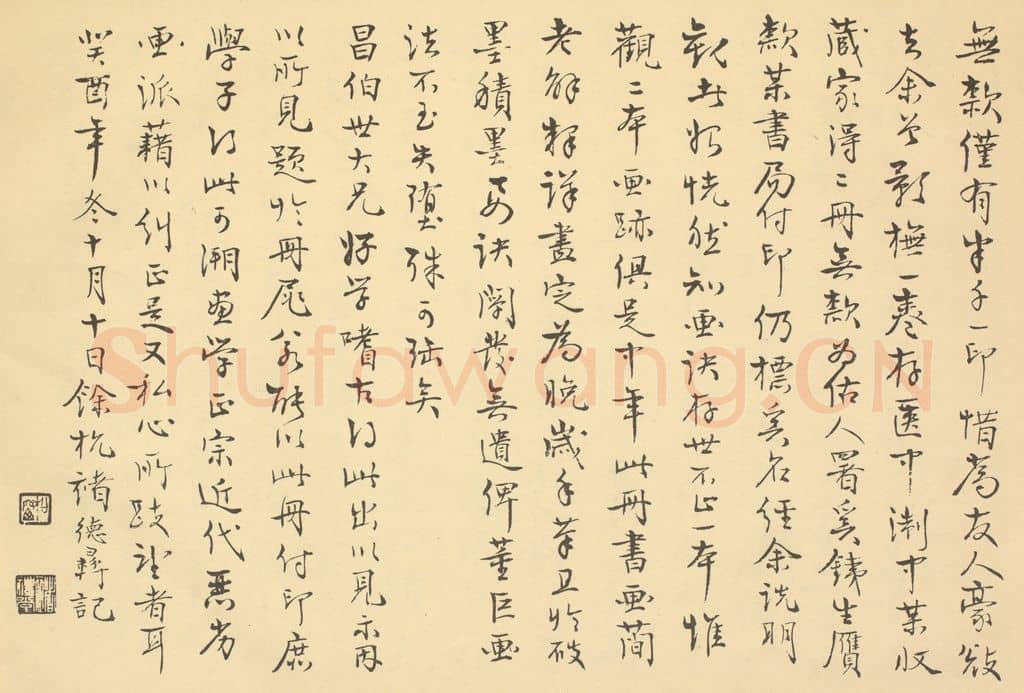 無款僅有半千一印惜為友人豪敓
去余曾影橅一卷存匧中淛中某收
藏家得二冊無款為估人署奚鐵生贋
款某書局付印仍標奚名經余說明
此始恍然知画訣存世不止一本惟
觀二本画跡俱是中年此冊書画簡
老解釋詳盡定為晚歲手筆且於破
墨積墨要訣闡發無遺俾董巨画
法不至失墮殊可珎矣
昌伯世大兄好学嗜古得此出以見示因
以所見題於冊尾若能以此冊付印庶
學子得此可溯画学正宗近代惡劣
画派藉以糾正是又私心所跂望者耳
癸酉年冬十月十日餘杭褚德彝記
Shufawang.CN